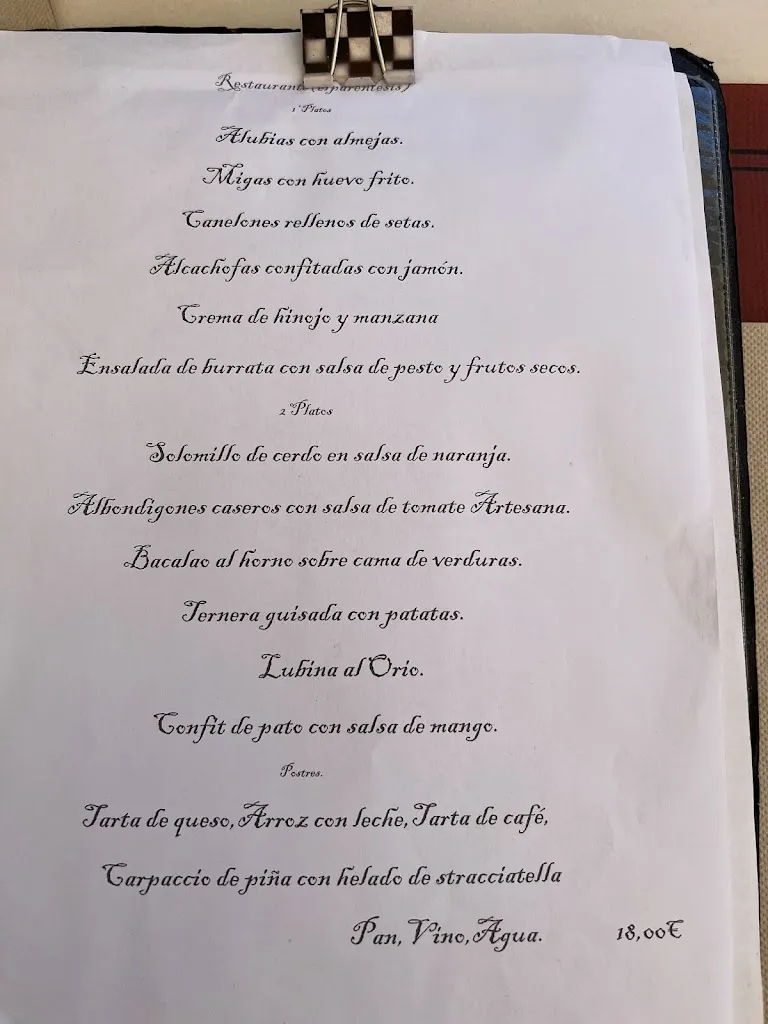 Restaurante (elparentesis)
1º Platos
Alubias con almejas.
Migas con huevo frito.
Canelones rellenos de setas.
Alcachofas confitadas con jamón.
Crema de hinojo y manzana
Ensalada de burrata con salsa de pesto y frutos secos.
2 Platos
Solomillo de cerdo en salsa de naranja.
Albondigones caseros con salsa de tomate Artesana.
Bacalao al horno sobre cama de verduras.
Ternera guisada con patatas.
Lubina al Orio.
Confit de pato con salsa de mango.
Postres.
Tarta de queso, Arroz con leche, Tarta de café,
Carpaccio de piña con helado de stracciatella
Pan, Vino, Agua. 18,00€